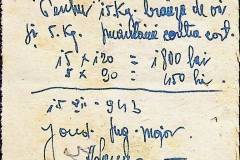 Pentru 15 Kg. branză de oi
și 5 Kg. contra cost.
15 x 120 = 1800 lei
5 x 90 = 450 lei
15 VI - 943
Jond. Plug. Major